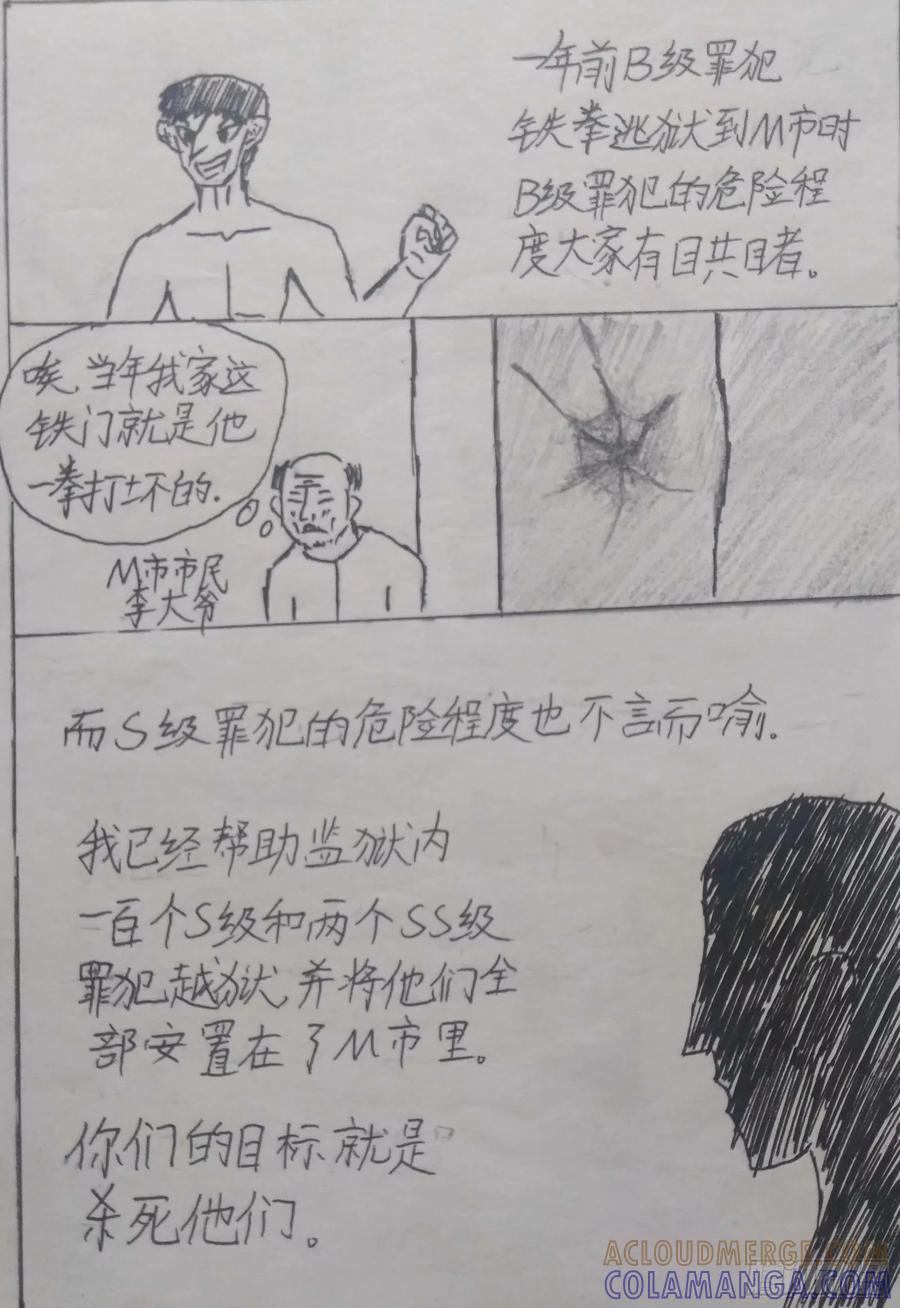 一年前B级罪犯
铁拳逃狱到M市时
B级罪犯的危险程
度大家有目共睹。
唉,当年我家这
铁门就是他
一拳打坏的.
M市市民
李大爷
而S级罪犯的危险程度也不言而喻.
我已经帮助监狱内
一百个S级和两个SS级
罪犯越狱,并将他们全
部安置在了M市里。
你们的目标就是
杀死他们。
ACLOUDMERGE.COM
COLAMANGA.COM